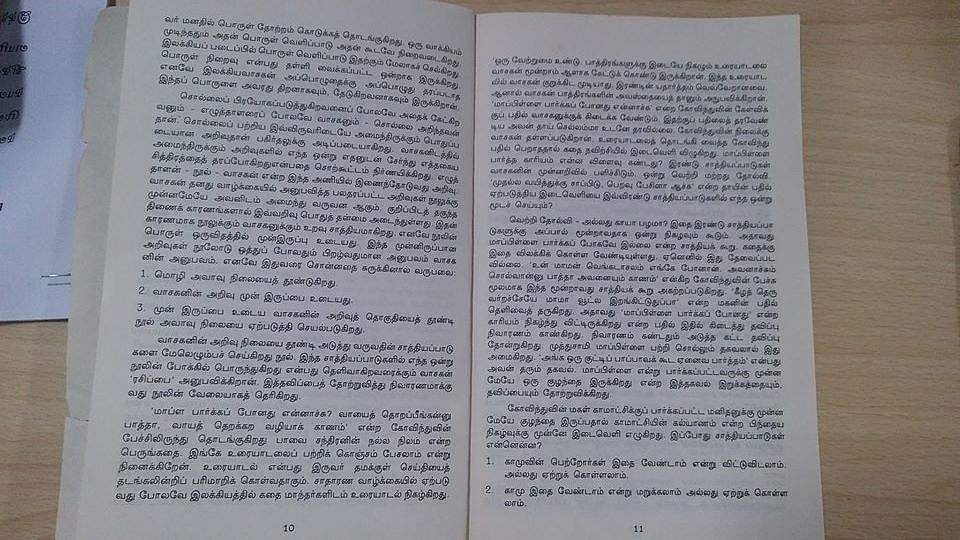 வர் மனதில் பொருள் தோற்றம் கொடுக்கத் தொடங்குகிறது. ஒரு வாக்கியம்
முடிந்ததும் அதன் பொருள் வெளிப்பாடு அதன் கூடவே நிறைவடைகிறது.
இலக்கியப் படைப்பில் பொருள் வெளிப்பாடு இதற்கும் மேலாகச் செல்கிறது.
பொருள் நிறைவு என்பது தள்ளி வைக்கப்பட்ட ஒன்றாக இருக்கிறது.
எனவே இலக்கியவாசகன் அப்பொழுதைக்கு அப்பொழுது தரப்படாத
இந்தப் பொருளை அவரது திறனாகவும், தேடுகிறவனாகவும் இருக்கிறான்.
சொல்லைப் பிரயோகப்படுத்துகிறவனைப் போலவே அதைக் கேட்கிற
வனும் - எழுத்தாளரைப் போலவே வாசகனும் - சொல்லை அறிந்தவன்
தான். சொல்லைப் பற்றிய இவ்விருவரிடையே அமைந்திருக்கும் பொதுப்ப
டையான அறிவுதான் பகிர்தலுக்கு அடிப்படையாகிறது. வாசகனிடத்தில்
அமைந்திருக்கும் அறிவுகளில் எந்த ஒன்று எதனுடன் சேர்ந்து எத்தகைய
சித்திரத்தைத் தரப்போகிறதுஎன்பதை சொற்கூட்டம் நிர்ணயிக்கிறது. எழுத்
தாளன் - நூல் - வாசகன் என்ற இந்த அணியில் இணைந்தோடுவது அறிவு.
வாசகன் தனது வாழ்க்கையில் அனுபவித்த பலதரப்பட்ட அறிவுகள் நூலுக்கு
முன்னமேயே அவனிடம் அமைந்து வருவன ஆகும். குறிப்பிடத் தகுந்த
திணைக் காரணங்களால் இவ்வறிவு பொதுத் தன்மை அடைந்துள்ளது. இதன்
காரணமாக நூலுக்கும் வாசகனுக்கும் உறவு சாத்தியமாகிறது. எனவே நூலின்
பொருள் ஒருவிதத்தில் முன்இருப்பு உடையது. இந்த முன்னிருப்பான
அறிவுகள் நூலோடு ஒத்துப் போவதும் பிறழ்வதுமான அனுபவம் வாசக
னின் அனுபவம். எனவே இதுவரை சொன்னதை சுருக்கினால் வருபவை:
1. மொழி அவாவு நிலையைத் தூண்டுகிறது.
2. வாசகனின் அறிவு முன் இருப்பை உடையது.
3. முன் இருப்பை உடைய வாசகனின் அறிவுத் தொகுதியைத் தூண்டி
நூல் அவாவு நிலையை ஏற்படுத்தி செயல்படுகிறது.
வாசகனின் அறிவு நிலையை தூண்டி அடுத்து வருவதின் சாத்தியப்பாடு
களை மேலெழும்பச் செய்கிறது நூல். இந்த சாத்தியப்பாடுகளில் எந்த ஒன்று
நூலின் போக்கில் பொருந்துகிறது என்பது தெளிவாகிறவரைக்கும் வாசகன்
'ரசிப்பை' அனுபவிக்கிறான். இந்தவிப்பைத் தோற்றுவித்து நிவாரணமாக்கு
வது நூலின் வேலையாகத் தெரிகிறது.
'மாப்ள பார்க்கப் போனது என்னாச்சு? வாயைத் தொறப்பீங்கன்னு
பாத்தா, வாயத் தெறக்கற வழியாக் காணம்' என்ற கோவிந்துவின்
பேச்சிலிருந்து தொடங்குகிறது பாவை சந்திரனின் நல்ல நிலம் என்ற
பெருங்கதை. இங்கே உரையாடலைப் பற்றிக் கொஞ்சம் பேசலாம் என்று
நினைக்கிறேன். உரையாடல் என்பது இருவர் தமக்குள் செய்தியைத்
தடங்கலின்றிப் பரிமாறிக் கொள்வதாகும். சாதாரண வாழ்க்கையில் ஏற்படு
வது போலவே இலக்கியத்தில் கதை மாந்தர்களிடம் உரையாடல் நிகழ்கிறது.
10
ஒரு வேற்றுமை உண்டு. பாத்திரங்களுக்கு இடையே நிகழும் உரையாடலை
வாசகன் மூன்றாம் ஆளாக கேட்டுக் கொண்டு இருக்கிறான். இந்த உரையாட
லில் வாசகன் குறுக்கிட முடியாது. இரண்டின் யதார்த்தம் வெவ்வேறானவை.
ஆனால் வாசகன் பாத்திரங்களின் அவஸ்தையைத் தானும் அனுபவிக்கிறான்.
'மாப்பிள்ளை பார்க்கப் போனது என்னாச்சு' என்ற கோவிந்துவின் கேள்விக்
குப் பதில் வாசகனுக்குக் கிடைக்க வேண்டும். இதற்குப் பதிலைத் தரவேண்
டிய அவன் தாய் செல்லம்மா உடனே தரவில்லை. கோவிந்துவின் நிலைக்கு
வாசகன் தள்ளப்படுகிறான். உரையாடலைத் தொடங்கி வைத்த கோவிந்து
பதில் பெறாததால் கதை தவிர்ப்பில் இடைவெளி விழுகிறது. மாப்பிள்ளை
பார்த்த காரியம் என்ன விளைவு கண்டது? இரண்டு சாத்தியப்பாடுகள்
வாசகனின் முன்னறிவில் பளிச்சிடும். ஒன்று வெற்றி மற்றது தோல்வி.
'முதல்ல வயித்துக்கு சாப்பிடு, பெறவு பேசினா ஆச்சு' என்ற தாயின் பதில்
ஏற்படுத்திய இடைவெளியை இவ்விரண்டு சாத்தியப்பாடுகளில் எந்த ஒன்று
மூடச் செய்யும்?
வெற்றி தோல்வி - அல்லது காயா பழமா? இதை இரண்டு சாத்தியப்பா
டுகளுக்கு அப்பால் மூன்றாவதாக ஒன்று நிகழவும் கூடும். அதாவது
மாப்பிள்ளை பார்க்கப் போகவே இல்லை என்ற சாத்தியக் கூறு. கதைக்கு
இதை விலக்கிக் கொள்ள வேண்டியுள்ளது. ஏனெனில் இது தேவைப்பட
வில்லை. 'உன் மாமன் வெங்கடாசலம் எங்கே போனான். அவனாச்சும்
சொல்வான்னு பாத்தா அவனையும் காணம்' என்கிற கோவிந்துவின் பேச்சு
மூலமாக இந்த மூன்றாவது சாத்தியக் கூறு அகற்றப்படுகிறது. 'கீழத் தெரு
வர்றச்சயே மாமா வூட்ல இறங்கிட்டுதுப்பா' என்ற மகனின் பதில்
தெளிவைத் தருகிறது. அதாவது 'மாப்பிள்ளை பார்க்கப் போனது' என்ற
காரியம் நிகழ்ந்து விட்டிருக்கிறது என்ற பதில் இதில் கிடைத்து தவிப்பு
நிவாரணம் காண்கிறது. நிவாரணம் கண்டதும் அடுத்த கட்ட தவிப்பு
தோன்றுகிறது. முத்துசாமி மாப்பிள்ளை பற்றி சொல்லும் தகவலால் இது
அமைகிறது. 'அங்க ஒரு குட்டிப் பாப்பாவக் கூட ஏனைவ பார்த்தம்' என்பது
அவன் தரும் தகவல். மாப்பிள்ளை என்று பார்க்கப்பட்டவருக்கு முன்ன
மேயே ஒரு குழந்தை இருக்கிறது என்ற இத்தகவல் இறுக்கத்தையும்,
தவிப்பையும் தோற்றுவிக்கிறது.
கோவிந்துவின் மகள் காமாட்சிக்குப் பார்க்கப்பட்ட மனிதனுக்கு முன்ன
மேயே குழந்தை இருப்பதால் காமாட்சியின் கல்யாணம் என்ற பிந்தைய
நிகழ்வுக்கு முன்னே இடைவெளி எழுகிறது. இப்போது சாத்தியப்பாடுகள்
என்னென்ன?
1. காமுவின் பெற்றோர்கள் இதை வேண்டாம் என்று விட்டுவிடலாம்.
அல்லது ஏற்றுக் கொள்ளலாம்.
2. காமு இதை வேண்டாம் என்று மறுக்கலாம் அல்லது ஏற்றுக் கொள்ள
லாம்.
11